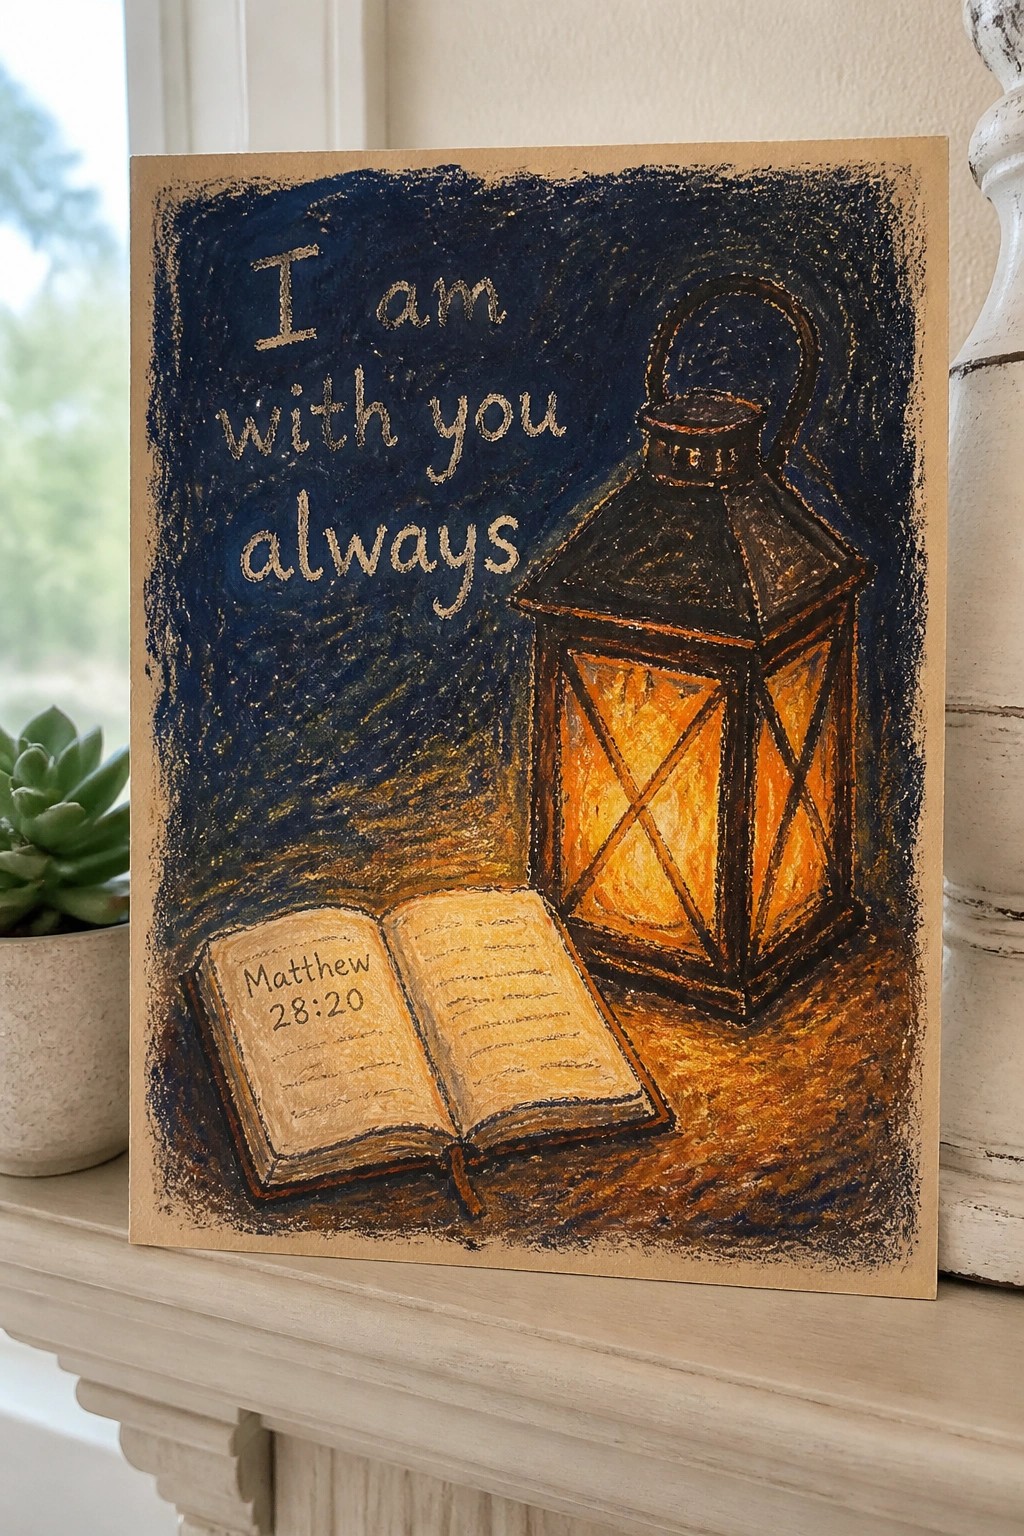 I am
with you
always
Matthew
28:20